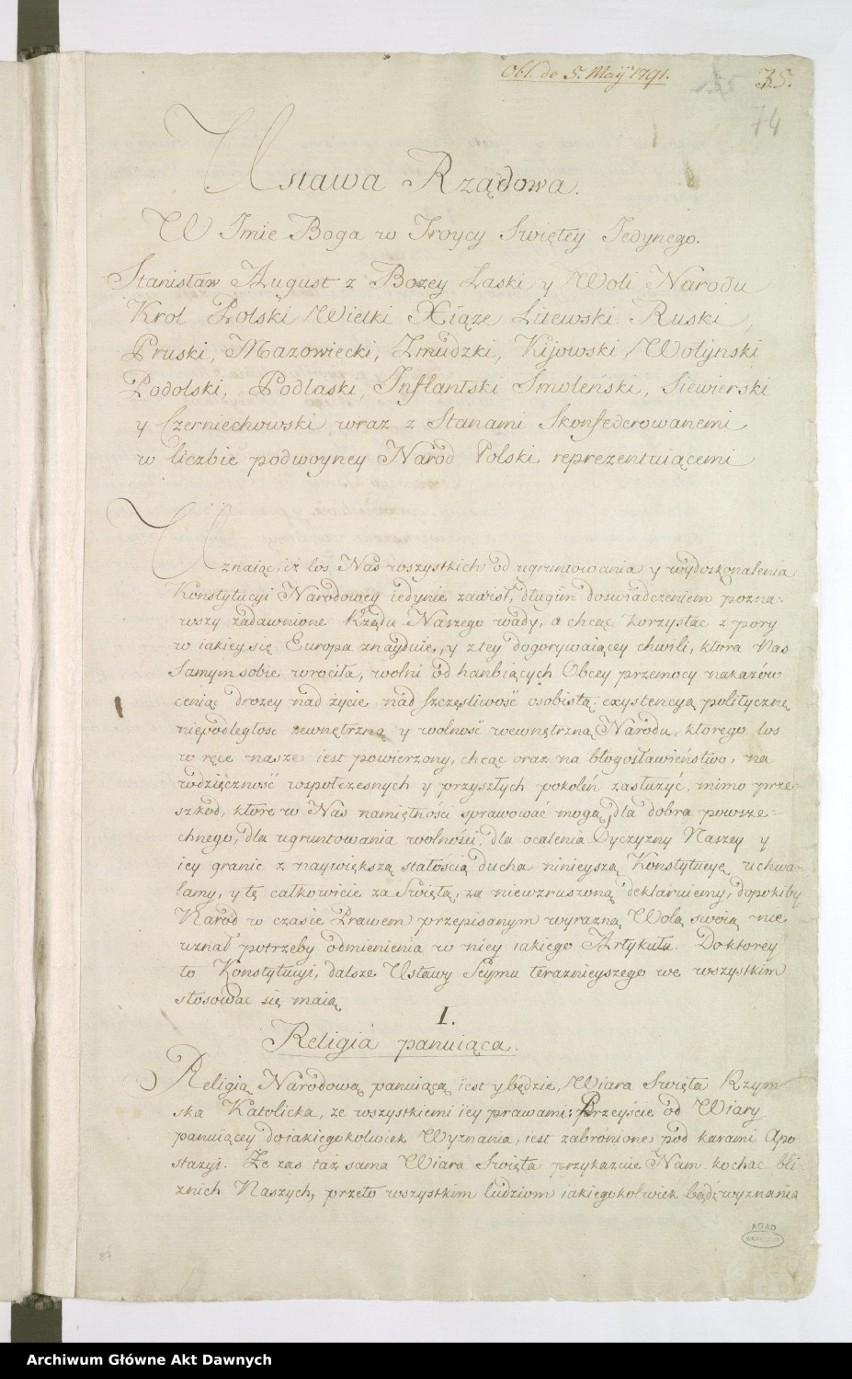 Obl. de 5. Maÿ 1791.
35.
74
Ustawa Rządowa.
W Imie Boga w Troycy Swiętey Jedynego.
Stanisław August z Bozey Łaski y Woli Narodu
Krol Polski Wielki Xiąże Litewski Ruski,
Pruski, Mazowiecki, Zmudzki, Kijowski Wołÿnski
Podolski, Podlaski, Inflantski Smoleński, Siewierski
y Czerniechowski wraz z Stanami Skonfederowanemi
w liczbie podwoyney Naród Polski reprezentuiącemi
Uznaiąc, iż los Nas wszystkich od ugruntowania y wydoskonalenia
Konstytucyi Narodowey iedynie zawisł, długim doswiadczeniem pozna-
wszy zadawnione Rządu Naszego wady, a chcąc korzystać z pory
w iakiey się Europa znayduie, y z tey dogorywaiącey chwili, ktora Nas
samym sobie wrociła, wolni od hanbiących Obcey przemocy nakazów
ceniąc drożey nad życie, nad szczęśliwość osobistą, exystencyą polityczną
niepodległosc zewnętrzną y wolność wewnętrzną Narodu, ktorego los
w ręce nasze iest powierzony, chcąc oraz na błogosławieństwo, na
wdzięczność wspołczesnych y przyszłych pokoleń zasłużyć, mimo prze-
szkod, ktore w Nas namiętności sprawować mogą, dla dobra powsze-
chnego, dla ugruntowania wolności, dla ocalenia Oyczyzny Naszey y
iey granic z naywiększą stałością ducha ninieyszą Konstytucyę uchwa-
lamy, y tę całkowicie za Swiętą, za niewzruszoną deklaruiemy, dopokiby
Naród w czasie Prawem przepisanym wyrazną Wolą swoią nie
uznał potrzeby odmienienia w niey iakiego Artykułu. Doktorey
to Konstytucyi, dalsze Ustawy Seymu teraznieyszego we wszystkim
stosować się maią
I.
Religia panuiąca.
Religią Narodową panuiącą iest y będzie, Wiara Swięta Rzym
ska Katolicka, ze wszystkiemi iey prawami; Przeyście od Wiary
panuiącey do iakiegokolwiek Wyznania, iest zabronione pod karami Apo
stazyi. Ze zas taż sama Wiara Swięta przykazuie Nam kochac bli-
znich Naszych, przeto wszystkim ludziom iakiegokolwiek bądź wyznania
AGAD
87
Archiwum Główne Akt Dawnych